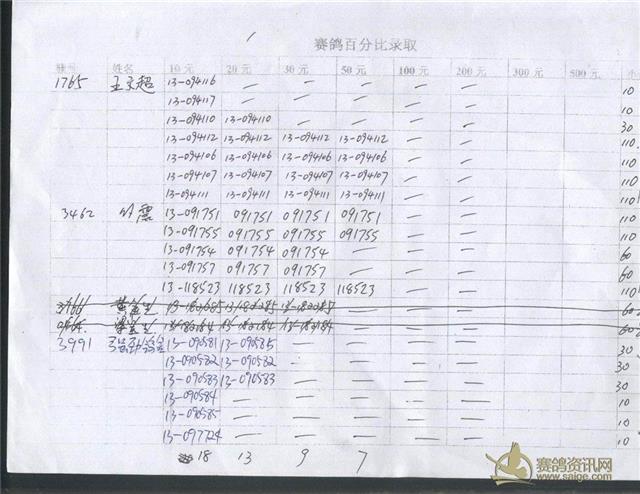 赛鸽百分比录取
姓名 10元 20元 30元 50元 100元 200元 300元 500元
1765 13-094116 — — — — — 10
13-094117 — — — — — 10
13-094110 13-094110 — — — — 30
13-094112 13-094112 13-094112 13-094112 — — 110
13-094106 13-094106 13-094106 13-094106 — — 110
13-094107 13-094107 13-094107 13-094107 — — 110
13-094111 13-094111 13-094111 13-094111 — — 110
3462 13-091751 091751 091751 091751 — — 110
13-091755 091755 091755 091755 — — 110
13-091754 091754 091754 — — — 60
13-091757 091757 091757 — — — 60
13-118523 118523 118523 118523 — — 110
3991 13-090581 13-090585 — — — — 30
13-090582 13-090582 — — — — 30
13-090583 13-090583 — — — — 30
13-090584 — — — — — 10
13-090585 — — — — — 10
13-097724 — — — — — 10
18 13 9 7
赛鸽资讯网
www.saige.com